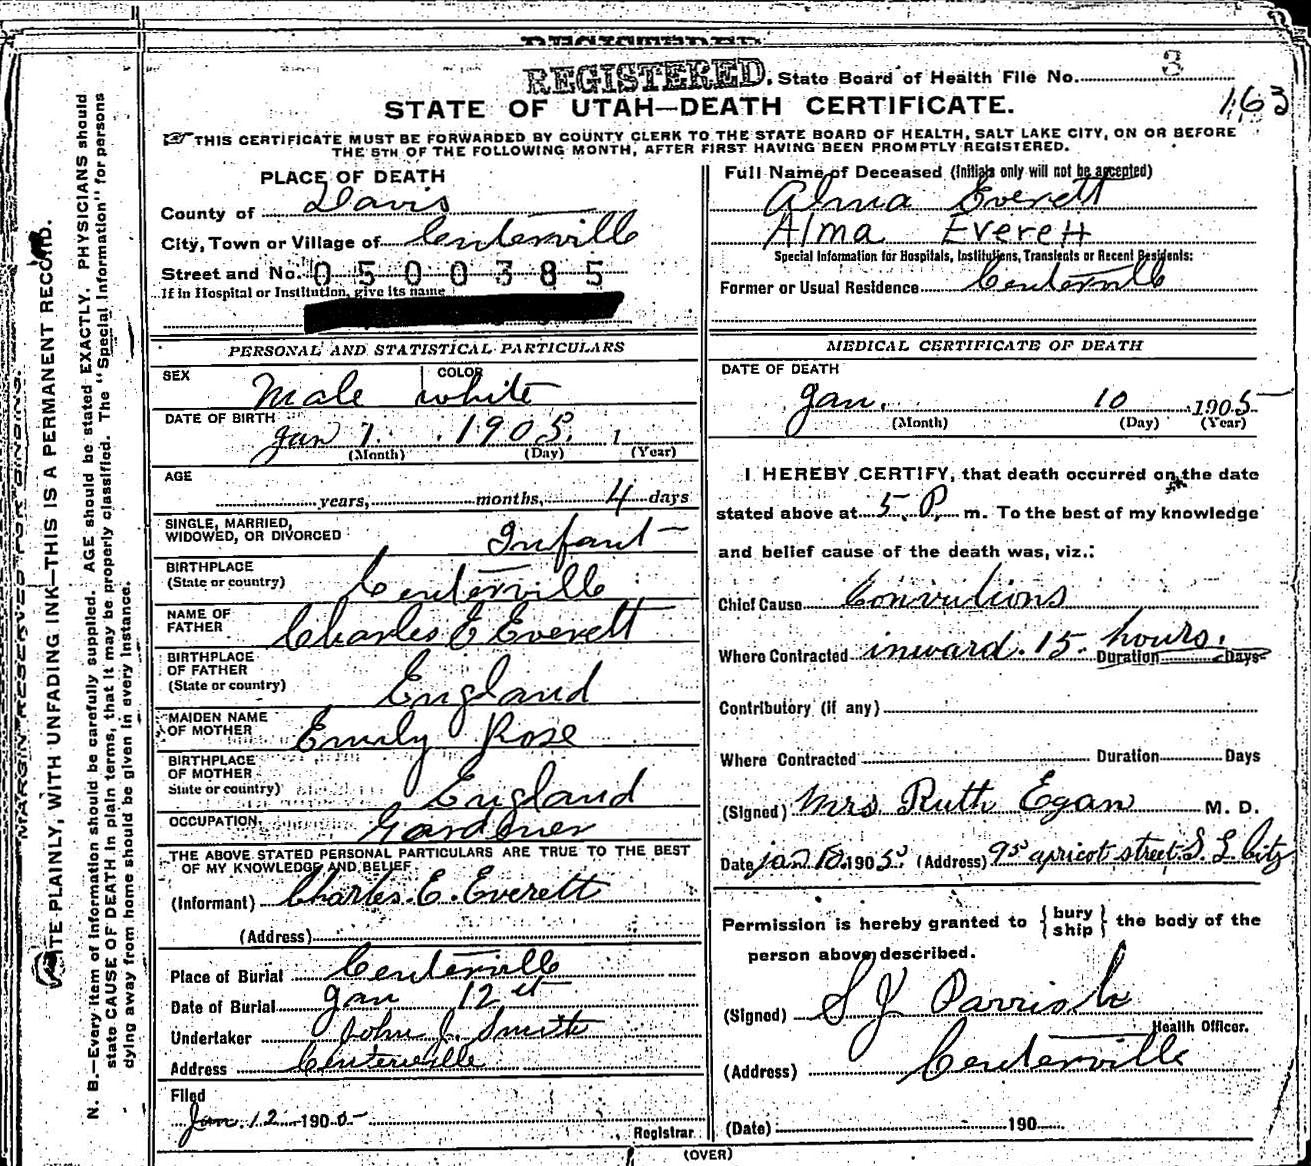 REGISTERED.
REGISTERED. State Board of Health File No. 3
163
STATE OF UTAH—DEATH CERTIFICATE.
THIS CERTIFICATE MUST BE FORWARDED BY COUNTY CLERK TO THE STATE BOARD OF HEALTH, SALT LAKE CITY, ON OR BEFORE
THE 5TH OF THE FOLLOWING MONTH, AFTER FIRST HAVING BEEN PROMPTLY REGISTERED.
MARGIN RESERVED FOR BINDING.
WRITE PLAINLY, WITH UNFADING INK—THIS IS A PERMANENT RECORD.
N. B.—Every item of information should be carefully supplied. AGE should be stated EXACTLY. PHYSICIANS should
state CAUSE OF DEATH in plain terms, that it may be properly classified. The "Special Information" for persons
dying away from home should be given in every instance.
PLACE OF DEATH
County of Davis
City, Town or Village of Centerville
Street and No. 0500385
If in Hospital or Institution, give its name
PERSONAL AND STATISTICAL PARTICULARS
SEX Male COLOR white
DATE OF BIRTH Jan 7. 1905. 1
(Month) (Day) (Year)
AGE
years, months, 4 days
SINGLE, MARRIED,
WIDOWED, OR DIVORCED Infant
BIRTHPLACE
(State or country) Centerville
NAME OF
FATHER Charles E Everett
BIRTHPLACE
OF FATHER
(State or country) England
MAIDEN NAME
OF MOTHER Emily Rose
BIRTHPLACE
OF MOTHER
State or country) England
OCCUPATION Gardner
THE ABOVE STATED PERSONAL PARTICULARS ARE TRUE TO THE BEST
OF MY KNOWLEDGE AND BELIEF
(Informant) Charles. E. Everett
(Address)
Place of Burial Centerville
Date of Burial Jan 12th
Undertaker John J. Smith
Address Centerville
Filed
Jan. 12 1905
Registrar
Full Name of Deceased (Initials only will not be accepted)
Alma Everett
Alma Everett
Special Information for Hospitals, Institutions, Transients or Recent Residents:
Former or Usual Residence Centerville
MEDICAL CERTIFICATE OF DEATH
DATE OF DEATH
Jan. 10 1905
(Month) (Day) (Year)
I HEREBY CERTIFY, that death occurred on the date
stated above at 5. P. m. To the best of my knowledge
and belief cause of the death was, viz.:
Chief Cause Convultions
Where Contracted inward. 15. hours. Duration Days
Contributory (if any)
Where Contracted Duration Days
(Signed) Mrs Ruth Egan M. D.
Date Jan 10 1905 (Address) 95 apricot street. S. L. City
Permission is hereby granted to { bury ship } the body of the
person above described.
(Signed) S J Parrish
Health Officer.
(Address) Centerville
(Date) 190
(OVER)